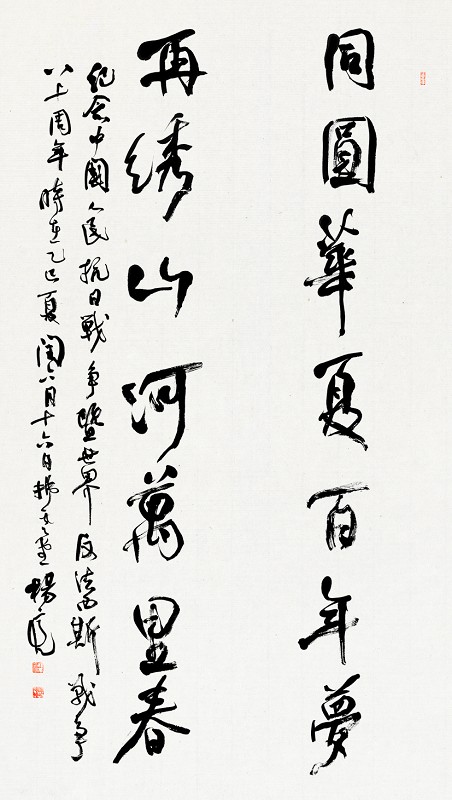 同圓華夏百年夢
再绣山河萬里春
纪念中國人民抗日戰爭暨世界反法西斯戰爭
八十周年時在乙巳夏閏六月十六日